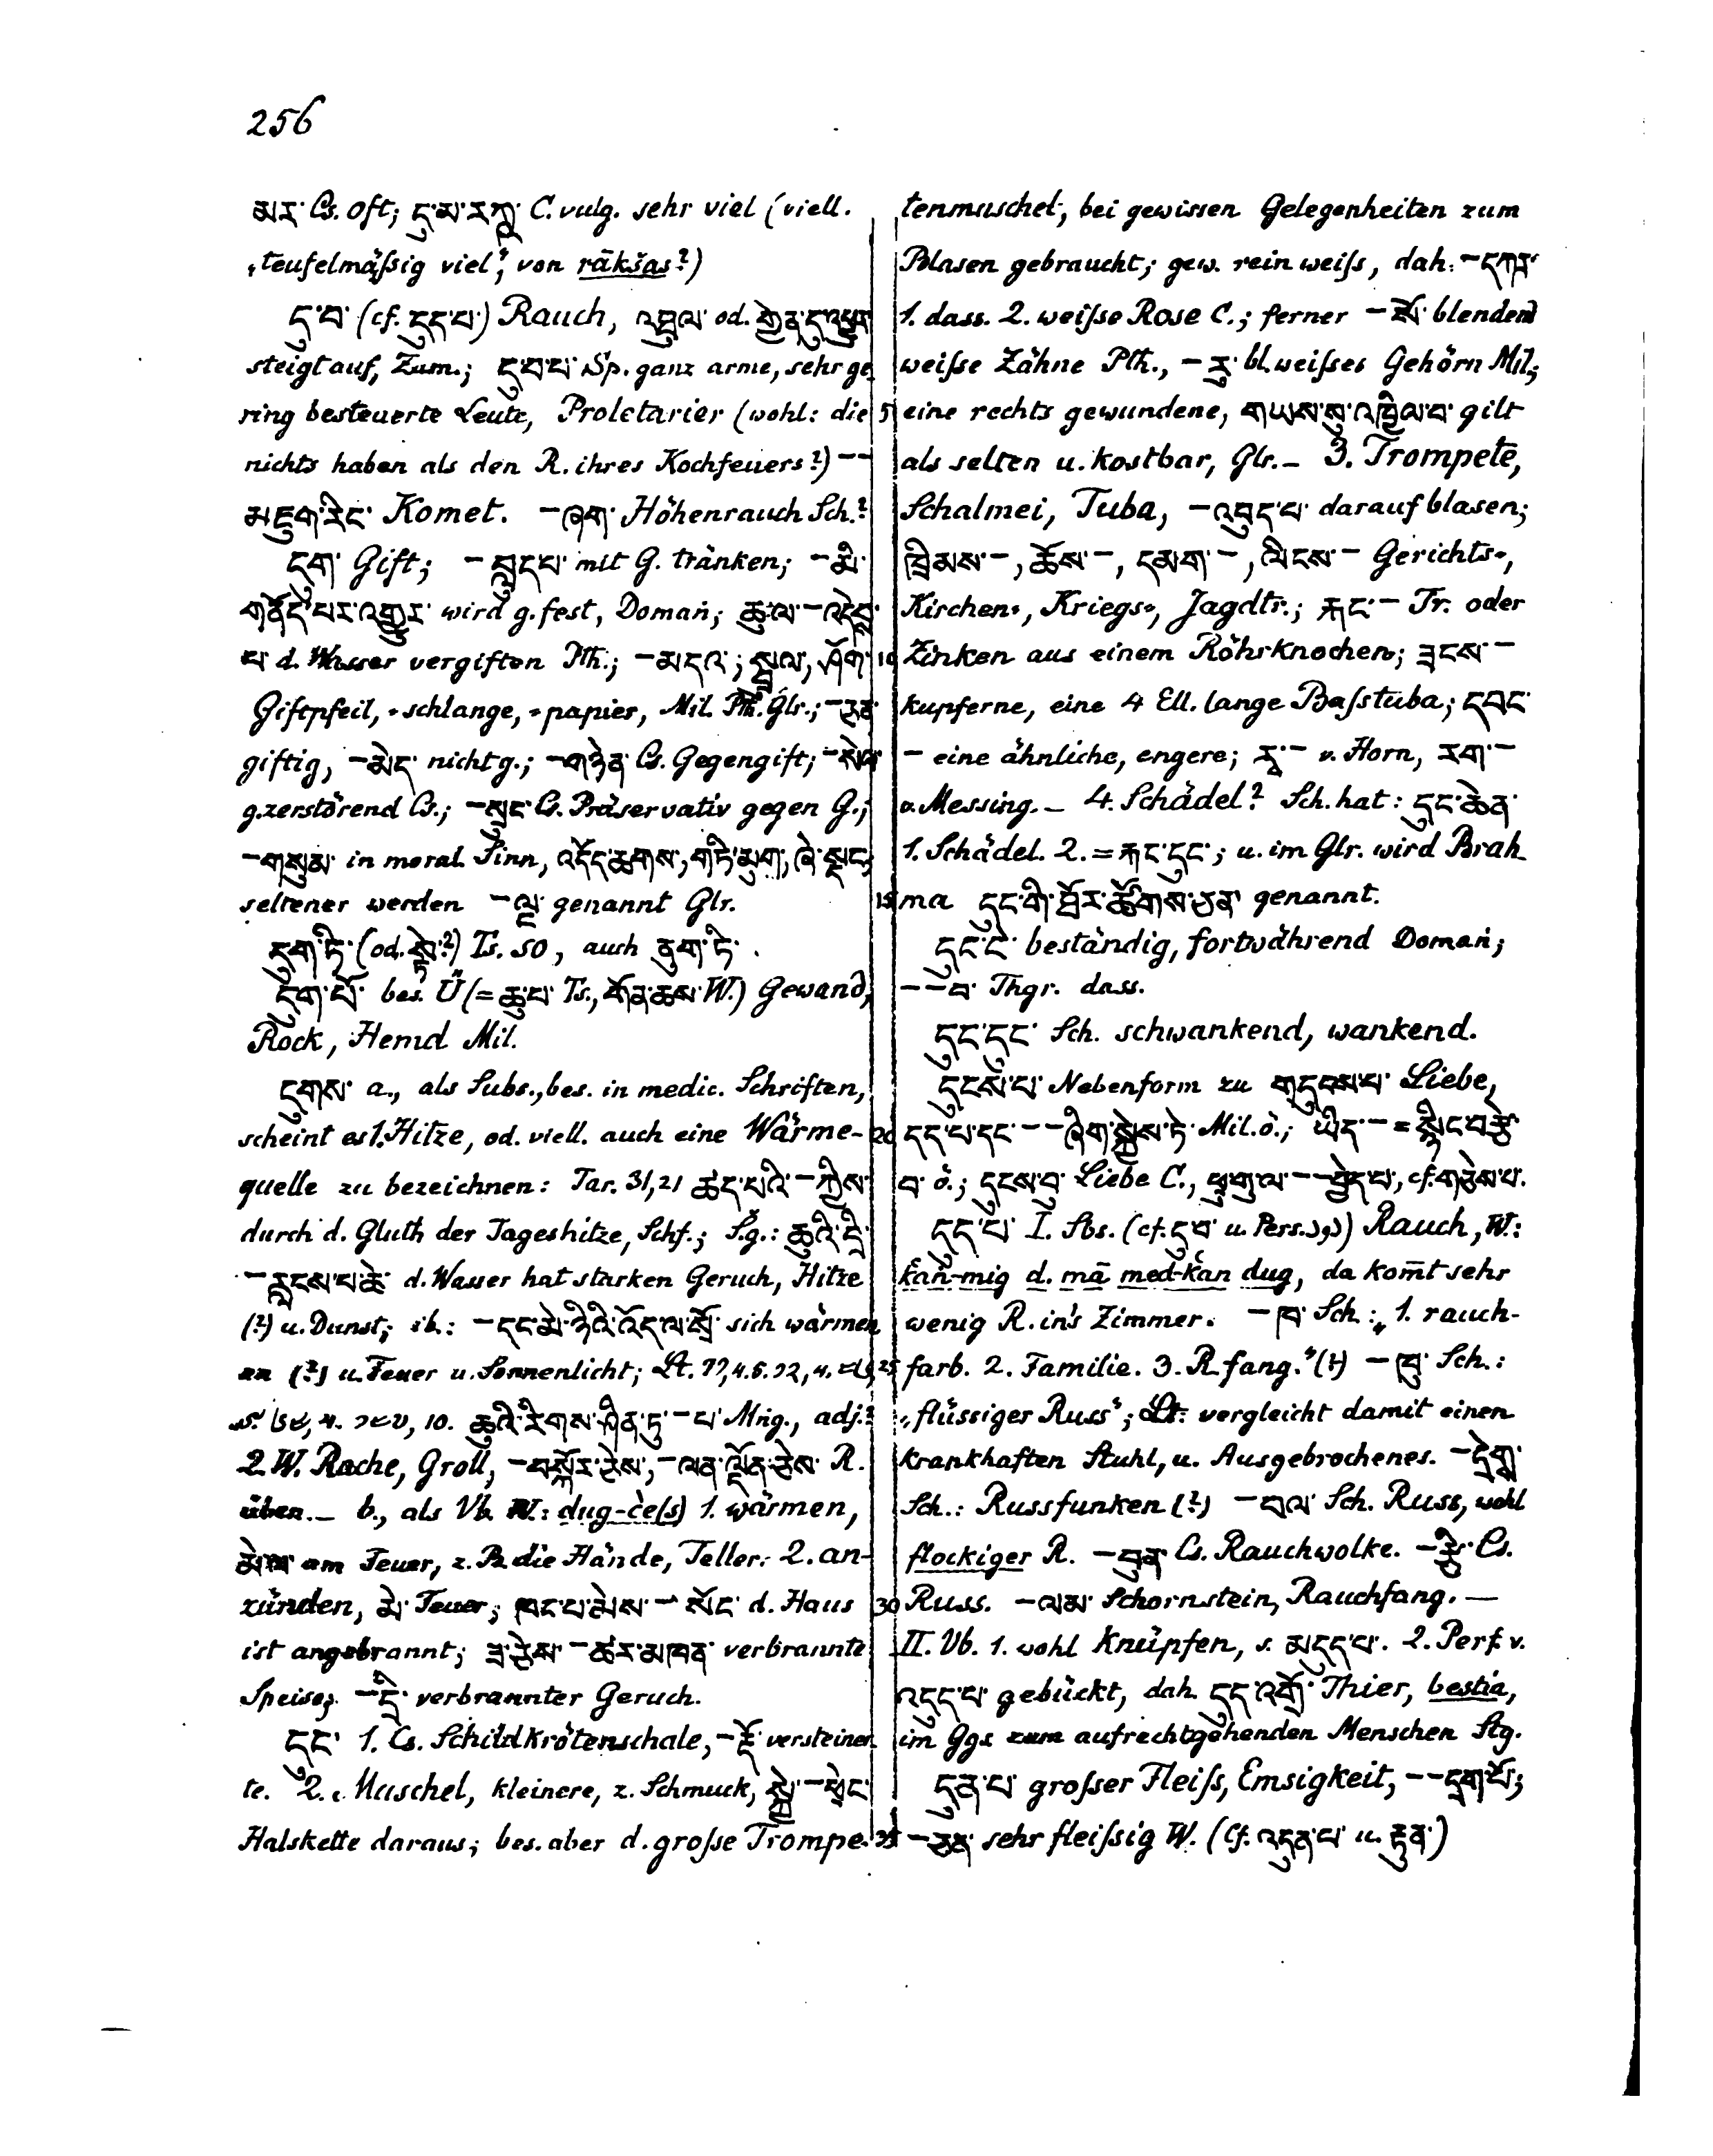 256
མར་ Cs. oft; དུ་མ་རཀྵ་ C. vulg. sehr viel (viell.
„teufelmäßig viel“, von rākšas?)
དུ་བ་ (cf. དུད་པ་) Rauch, འཕྱུལ་ od. གྱེན་དུ་འཕྱུར་
steigt auf, Zam.; དུ་བ་པ་ Sp. ganz arme, sehr ge
ring besteuerte Leute, Proletarier (wohl: die
nichts haben als den R. ihres Kochfeuers?) – –
མཇུག་རིང་ Komet. – ཞག་ Höhenrauch Sch.?
དུག་ Gift; – བླུད་པ་ mit G. tränken; – མི་
གནོད་པར་འགྱུར་ wird g. fest, Domań; ཆུ་ལ་ – འདེབས་
པ་ d. Wasser vergiften Pth.; – མདའ་; སྦྲུལ་, ཤོག་
Giftpfeil, -schlange, -papier, Mil. Pth. Glr.; – ཅན་
giftig, – མེད་ nicht g.; – གཉེན་ Cs. Gegengift; – སེལ་
g. zerstörend Cs.; – སྲུང་ Cs. Präservativ gegen G.;
– གསུམ་ in moral. Sinn, འདོད་ཆགས་, གཏི་མུག་, ཞེ་སྡང་,
seltener werden – ལྔ་ genannt Glr.
དུག་ཏི་ (od. སྟེ་?) Ts. so, auch ནུག་ཏི་.
དུག་པོ་ bes. Ü (= ཆུ་པ་ Ts., གོན་ཆས་ W.) Gewand,
Rock, Hemd Mil.
དུགས་ a., als Subs., bes. in medic. Schriften,
scheint es 1. Hitze, od. viell. auch eine Wärme-
quelle zu bezeichnen: Tar. 31,21 ཚད་པའི་ – ཀྱིས་
durch d. Gluth der Tageshitze, Schf.; S.g.: ཆུའི་དྲི་
– རླངས་པ་ཆེ་ d. Wasser hat starken Geruch, Hitze
(?) u. Dunst; ib.: – དང་མེ་ཉི་འོད་ལ་སྲོ་ sich wärmen
an (?) u. Feuer u. Sonnenlicht;
ཆུའི་རིགས་ཤིན་ཏུ་ – པ་ Mng., adj.?
2. W. Rache, Groll, – བསྐོར་ཅེས་, – ལན་ལྡོན་ཅེས་ R.
üben. – b., als Vb. W.: dug-če(s) 1. wärmen,
མེ་ལ་ am Feuer, z. B. die Hände, Teller. 2. an-
zünden, མེ་ Feuer; ཁང་པ་མེས་ – སོང་ d. Haus
ist angebrannt; ཟ་ཅེས་ – ཚར་མཁན་ verbrannte
Speise; – དྲི་ verbrannter Geruch.
དུང་ 1. Cs. Schildkrötenschale, – རྡོ་ versteiner
te. 2. Muschel, kleinere, z. Schmuck, སྐྱེ་ – ཕྲེང་
Halskette daraus; bes. aber d. große Trompe-
tenmuschel, bei gewissen Gelegenheiten zum
Blasen gebraucht; gew. rein weiß, dah: – དཀར་
1. dass. 2. weiße Rose C.; ferner – སོ་ blendend
weiße Zähne Pth., – རུ་ bl. weißes Gehörn Mil.;
5 eine rechts gewundene, གཡས་སུ་འཁྱིལ་བ་ gilt
als selten u. kostbar, Glr. – 3. Trompete,
Schalmei, Tuba, – འབུད་པ་ darauf blasen;
ཁྲིམས་ –, ཆོས་ –, དམག་ –, ལིངས་ – Gerichts-,
Kirchen-, Kriegs-, Jagdtr.; རྐང་ – Tr. oder
10 Zinken aus einem Röhrknochen; ཟངས་ –
kupferne, eine 4 Ell. lange Baßtuba; དབང་
– eine ähnliche, engere; རྭ་ – v. Horn, རག་ –
v. Messing. – 4. Schädel? Sch. hat: དུང་ཆེན་
1. Schädel. 2. = རྐང་དུང་; u. im Glr. wird Brah
15 ma དུང་གི་ཐོར་ཚོགས་ཅན་ genannt.
དུང་ངེ་ beständig, fortwährend Domań;
– – བ་ Thgr. dass.
དུང་དུང་ Sch. schwankend, wankend.
དུངས་པ་ Nebenform zu གདུངས་པ་ Liebe,
20 དད་པ་དང་ – – ཞིག་སྐྱེས་ཏེ་ Mil. ö.; ཡིད་ – = སྙིང་བརྩེ་
བ་ ö.; དུངས་བུ་ Liebe C., ཕུ་གུ་ལ་ – – བྱེད་པ་, cf. གཅེས་པ་.
དུད་པ་ I. Sbs. (cf. དུ་བ་ u. Pers. دود) Rauch, W.:
k̀aṅ-mig d. mā med-k̀an dug, da kom̄t sehr
wenig R. in's Zimmer. – ཁ་ Sch.: „1. rauch-
25 farb. 2. Familie. 3. R. fang.“ (?) – ཁུ་ Sch.:
„flüssiger Russ“; Lt. vergleicht damit einen
krankhaften Stuhl, u. Ausgebrochenes. – དྲེག་
Sch.: Russfunken (?) – བལ་ Sch. Russ, wohl
flockiger R. – སྤྲིན་ Cs. Rauchwolke. – རྩི་ Cs.
30 Russ. – ལམ་ Schornstein, Rauchfang. —
II. Vb. 1. wohl knüpfen, s. མདུད་པ་. 2. Perf. v.
འདུད་པ་ gebückt, dah. དུད་འགྲོ་ Thier, bestia,
im Ggs. zum aufrechtgehenden Menschen Stg.
དུན་པ་ großer Fleiß, Emsigkeit, – – དྲག་པོ་;
35 – ཅན་ sehr fleißig W. (cf. འདུན་པ་ u. རྟུན་)